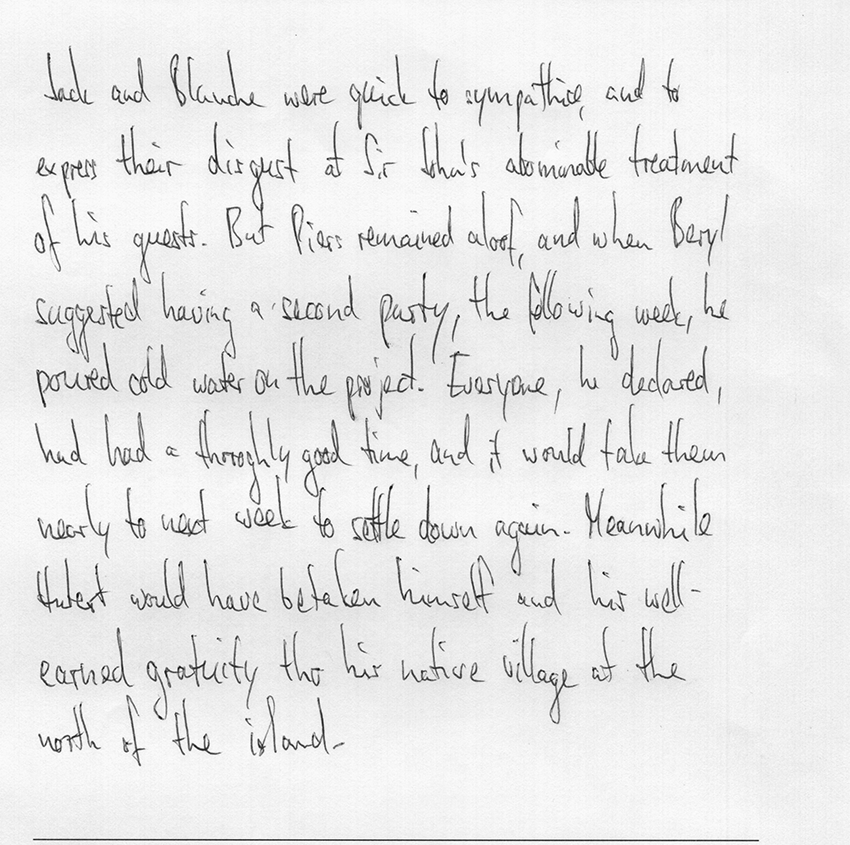 Jack and Blanche were quick to sympathise, and to
express their disgust at Sir John's abominable treatment
of his guests. But Piers remained aloof, and when Beryl
suggested having a second party, the following week, he
poured cold water on the project. Everyone, he declared,
had had a throoghly good time, and it would take them
nearly to next week to settle down again. Meanwhile
Hubert would have betaken himself and his well-
earned gratuity tho his native village at the
north of the island.